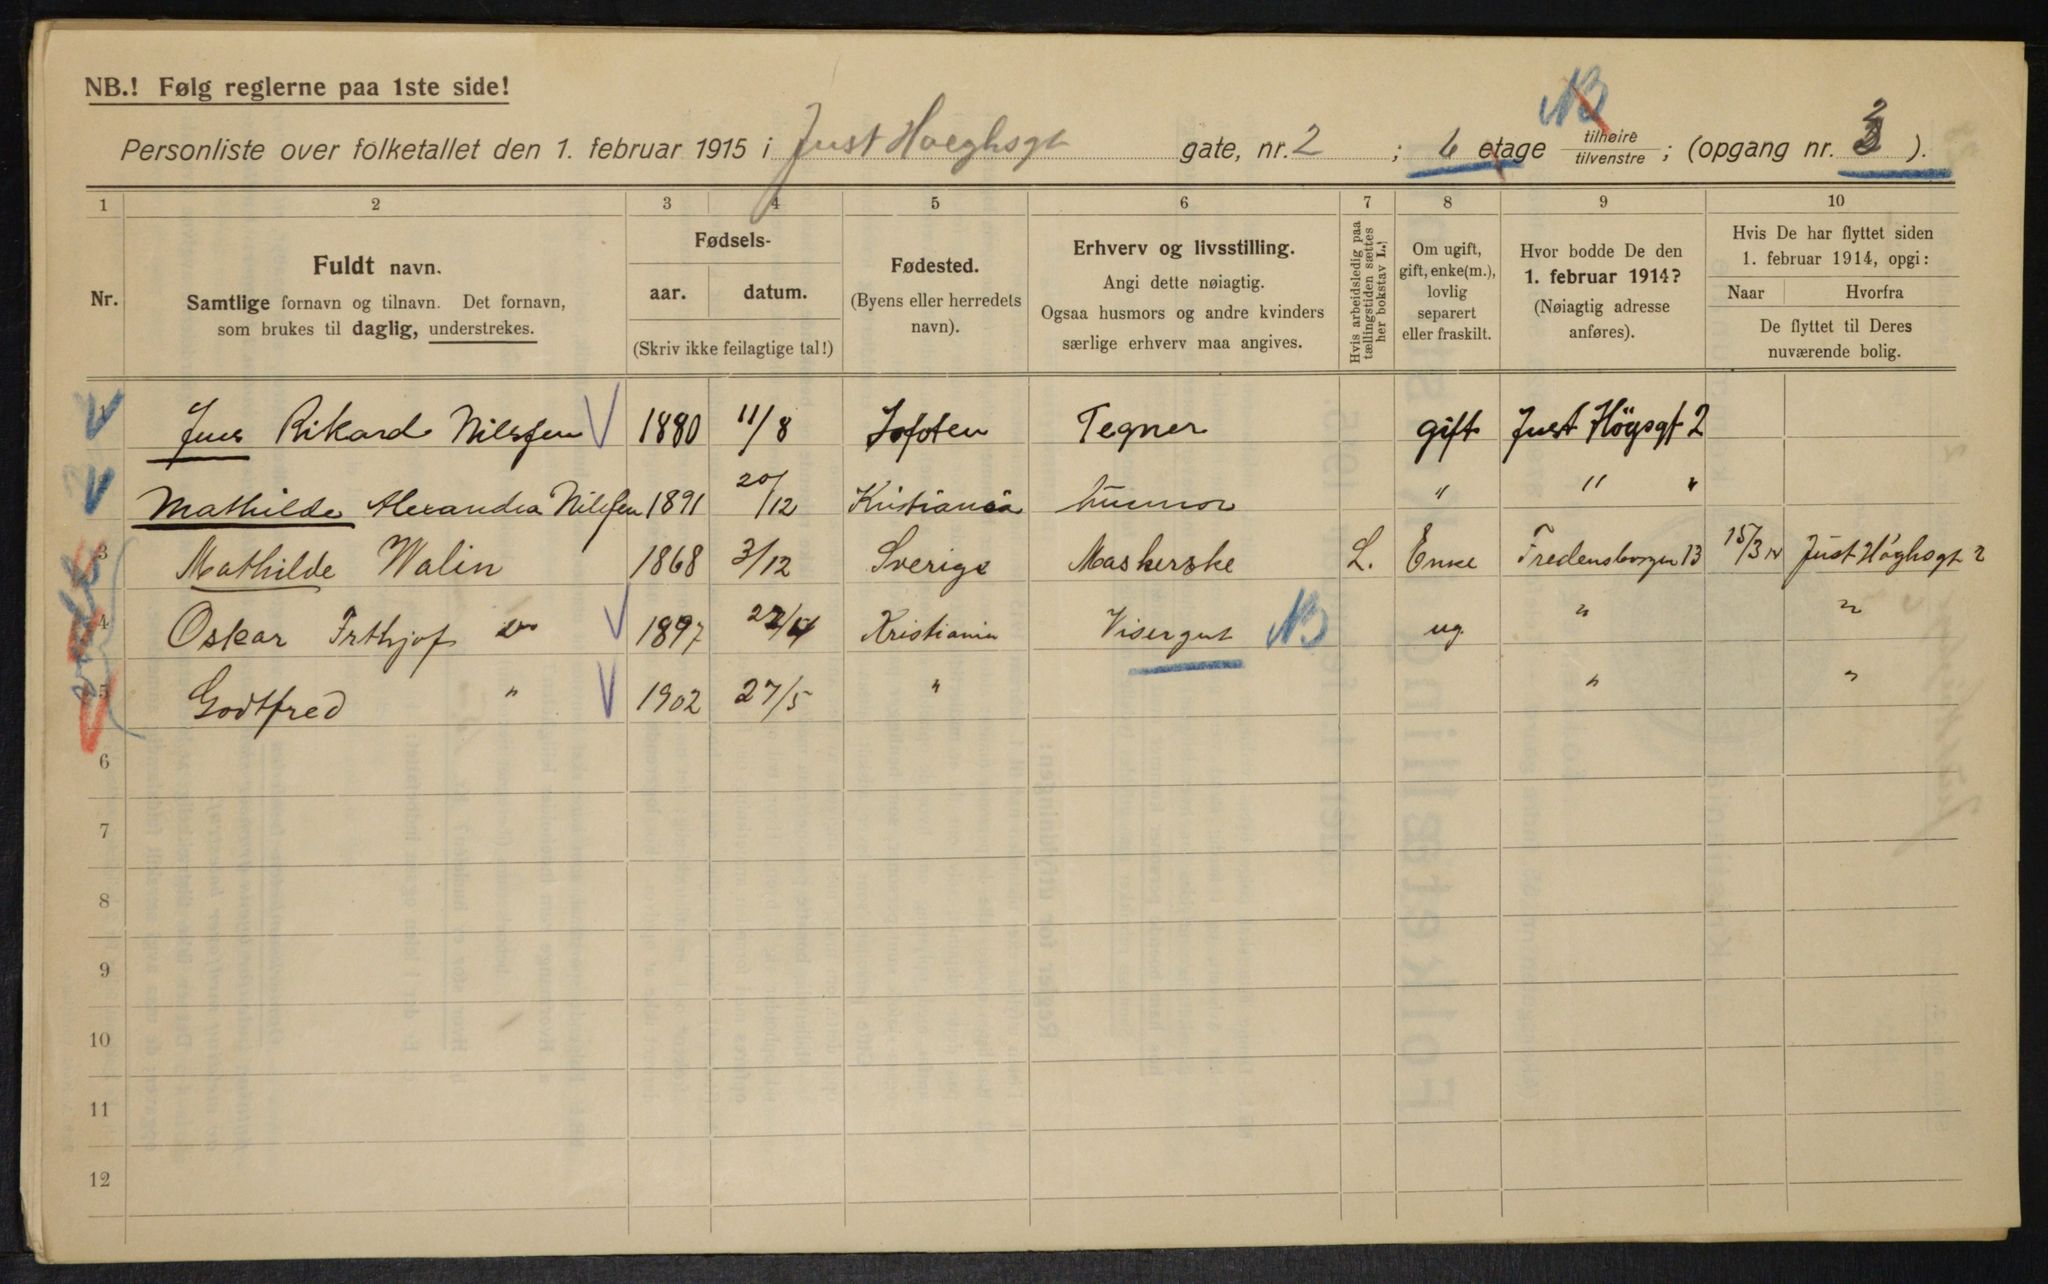 NB.! Følg reglerne paa 1ste side!
NB
Personliste over folketallet den 1. februar 1915 i Just Høeghsgt gate, nr. 2 ; 6 etage tilhøire / tilvenstre ; (opgang nr. 2 ).
1 2 3 4 5 6 7 8 9 10
Nr.
Fuldt navn.
Samtlige fornavn og tilnavn. Det fornavn,
som brukes til daglig, understrekes.
Fødsels-
aar. datum.
(Skriv ikke feilagtige tal!)
Fødested.
(Byens eller herredets
navn).
Erhverv og livsstilling.
Angi dette nøiagtig.
Ogsaa husmors og andre kvinders
særlige erhverv maa angives.
Hvis arbeidsledig paa
tællingstiden sættes
her bokstav L.!
Om ugift,
gift, enke(m.),
lovlig
separert
eller fraskilt.
Hvor bodde De den
1. februar 1914?
(Nøiagtig adresse
anføres).
Hvis De har flyttet siden
1. februar 1914, opgi:
Naar Hvorfra
De flyttet til Deres
nuværende bolig.
1 Jens Rikard Nilssen 1880 11/8 Lofoten Tegner gift Just Høgsgt 2
Mathilde Alexandra Nilssen 1891 20/12 Kristiania husmor " " "
3 Mathilde Walin 1868 3/12 Sverige Maskerske L. Enke Fredensborgen 13 15/3 14 Just Høghsgt 2
4 Oskar Frthjof " 1897 Kristiania Visergut NB ug. " "
5 Godtfred " 1902 27/5 " " "
6
7
8
9
10
11
12